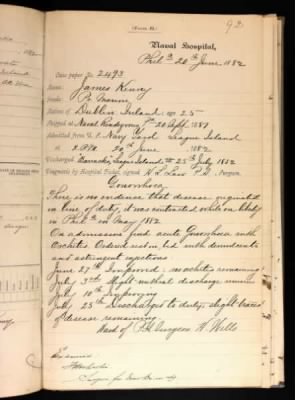 92.
(Form H.)
Naval Hospital,
Phil a 20th June 1882
Case paper No 2493
Name: James Kenny
Grade: Pr. Marine
Native of Dublin Ireland: age 25
Shipped at Naval 20 Sept. 1881
Admitted from U.S. Navy Yard League Island
20th June 1882
Discharged Barracks, League Island 25th July 1882
Diagnosis by Hospital Ticket, signed Surgeon.
Gonorrhoea
There is no evidence that disease originated
in line of duty, it was contracted while on liberty
in Phil a in May 1882.
On admission find acute Gonorrhoea with
Orchitis. Ordered rest in bed with demulcents
and astringent injections
June 27th Improved: no orchitis remaining
July 3rd Slight urethral discharge remains
July 10th Improving
July 25th Discharged to duty, slight traces
of disease remaining.
Surgeon H. Wells
Examined